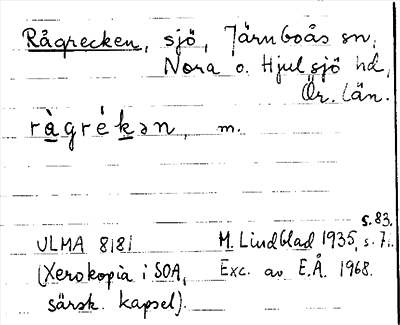 Rågrecken, sjö, Järnboås sn,
Nora o. Hjulsjö hd,
Ör. län.
ràgrékən, m.
s. 83.
ULMA 8181 M. Lindblad 1935, s. 7.
(Xerokopia i SOA, Exc. av E.Å. 1968.
särsk. kapsel).